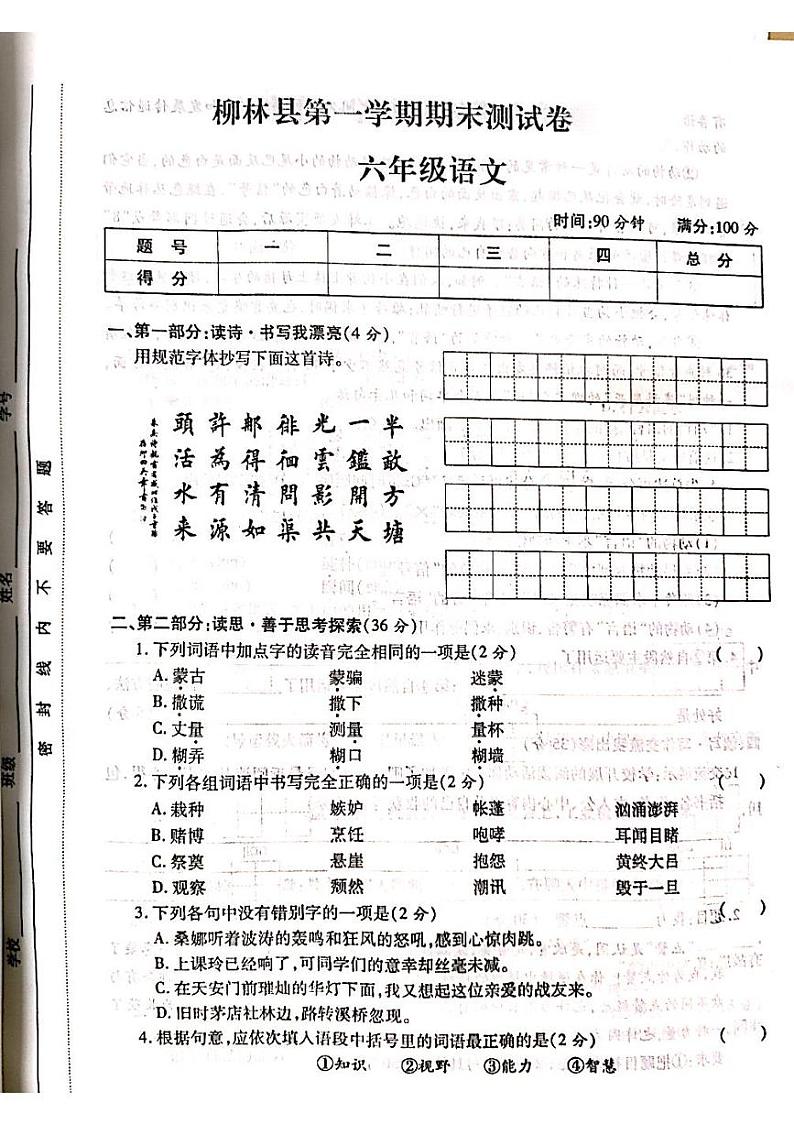 柳林县第一学期期末测试卷
六年级语文
时间:90分钟 满分:100分
题号 一 二 三 四 总分
得分
一、第一部分:读诗·书写我漂亮(4分)
用规范字体抄写下面这首诗。
半敢方塘
一鑑開天
光雲影共
徘徊問渠
邮得清如
許為有源
頭活水来
二、第二部分:读思·善于思考探索(36分)
1.下列词语中加点字的读音完全相同的一项是(2分) ( )
A.蒙古 蒙骗 迷蒙
B.撒谎 撒下 撒种
C.丈量 测量 量杯
D.糊弄 糊口 糊墙
2.下列各组词语中书写完全正确的一项是(2分) ( )
A.栽种 嫉妒 帐蓬 汹涌澎湃
B.赌博 烹饪 咆哮 耳闻目睹
C.祭奠 悬崖 抱怨 黄终大吕
D.观察 颓然 潮讯 毁于一旦
3.下列各句中没有错别字的一项是(2分) ( )
A.桑娜听着波涛的轰鸣和狂风的怒吼,感到心惊肉跳。
B.上课玲已经响了,可同学们的意幸却丝毫未减。
C.在天安门前璀灿的华灯下面,我又想起这位亲爱的战友来。
D.旧时茅店社林边,路转溪桥忽现。
4.根据句意,应依次填入语段中括号里的词语最正确的是(2分) ( )
①知识 ②视野 ③能力 ④智慧
学校
班级
姓名
学号
密封线内不要答题